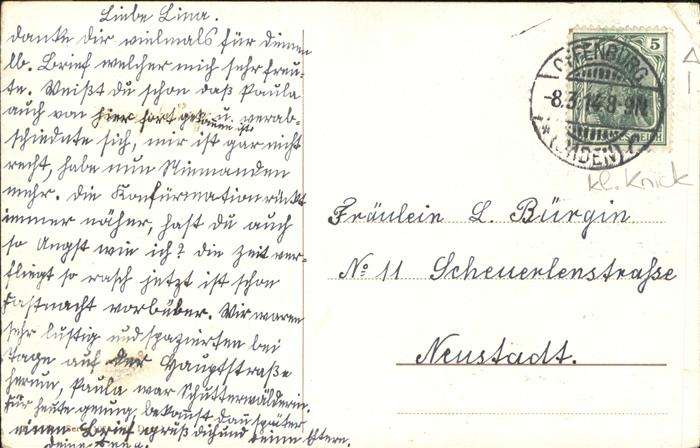 Liebe Lina.
danke dir vielmals für deinen
lb. Brief welcher mich sehr freu-
te. Weißt du schon daß Paula
auch von hier fort gekommen ist u. verab-
schiedete sich, mir ist gar nicht
recht, habe nun Niemanden
mehr. Die Konfirmation rückt
immer näher, hast du auch
so Angst wie ich? die Zeit ver-
fliegt so rasch jetzt ist schon
Fastnacht vorbüber. Wir waren
sehr lustig und spazierten bei
Tage auf der Hauptstraße
herum, Paula war Schutterwälderin.
für heute genug, bekomst dan später
einen Brief grüß dich und deine Eltern.
deine
5
OFFENBURG
-8.3.14.8-9N
*(BADEN)
kl. Knick
Fräulein L. Bürgin
No 11 Scheuerlenstraße
Neustadt.